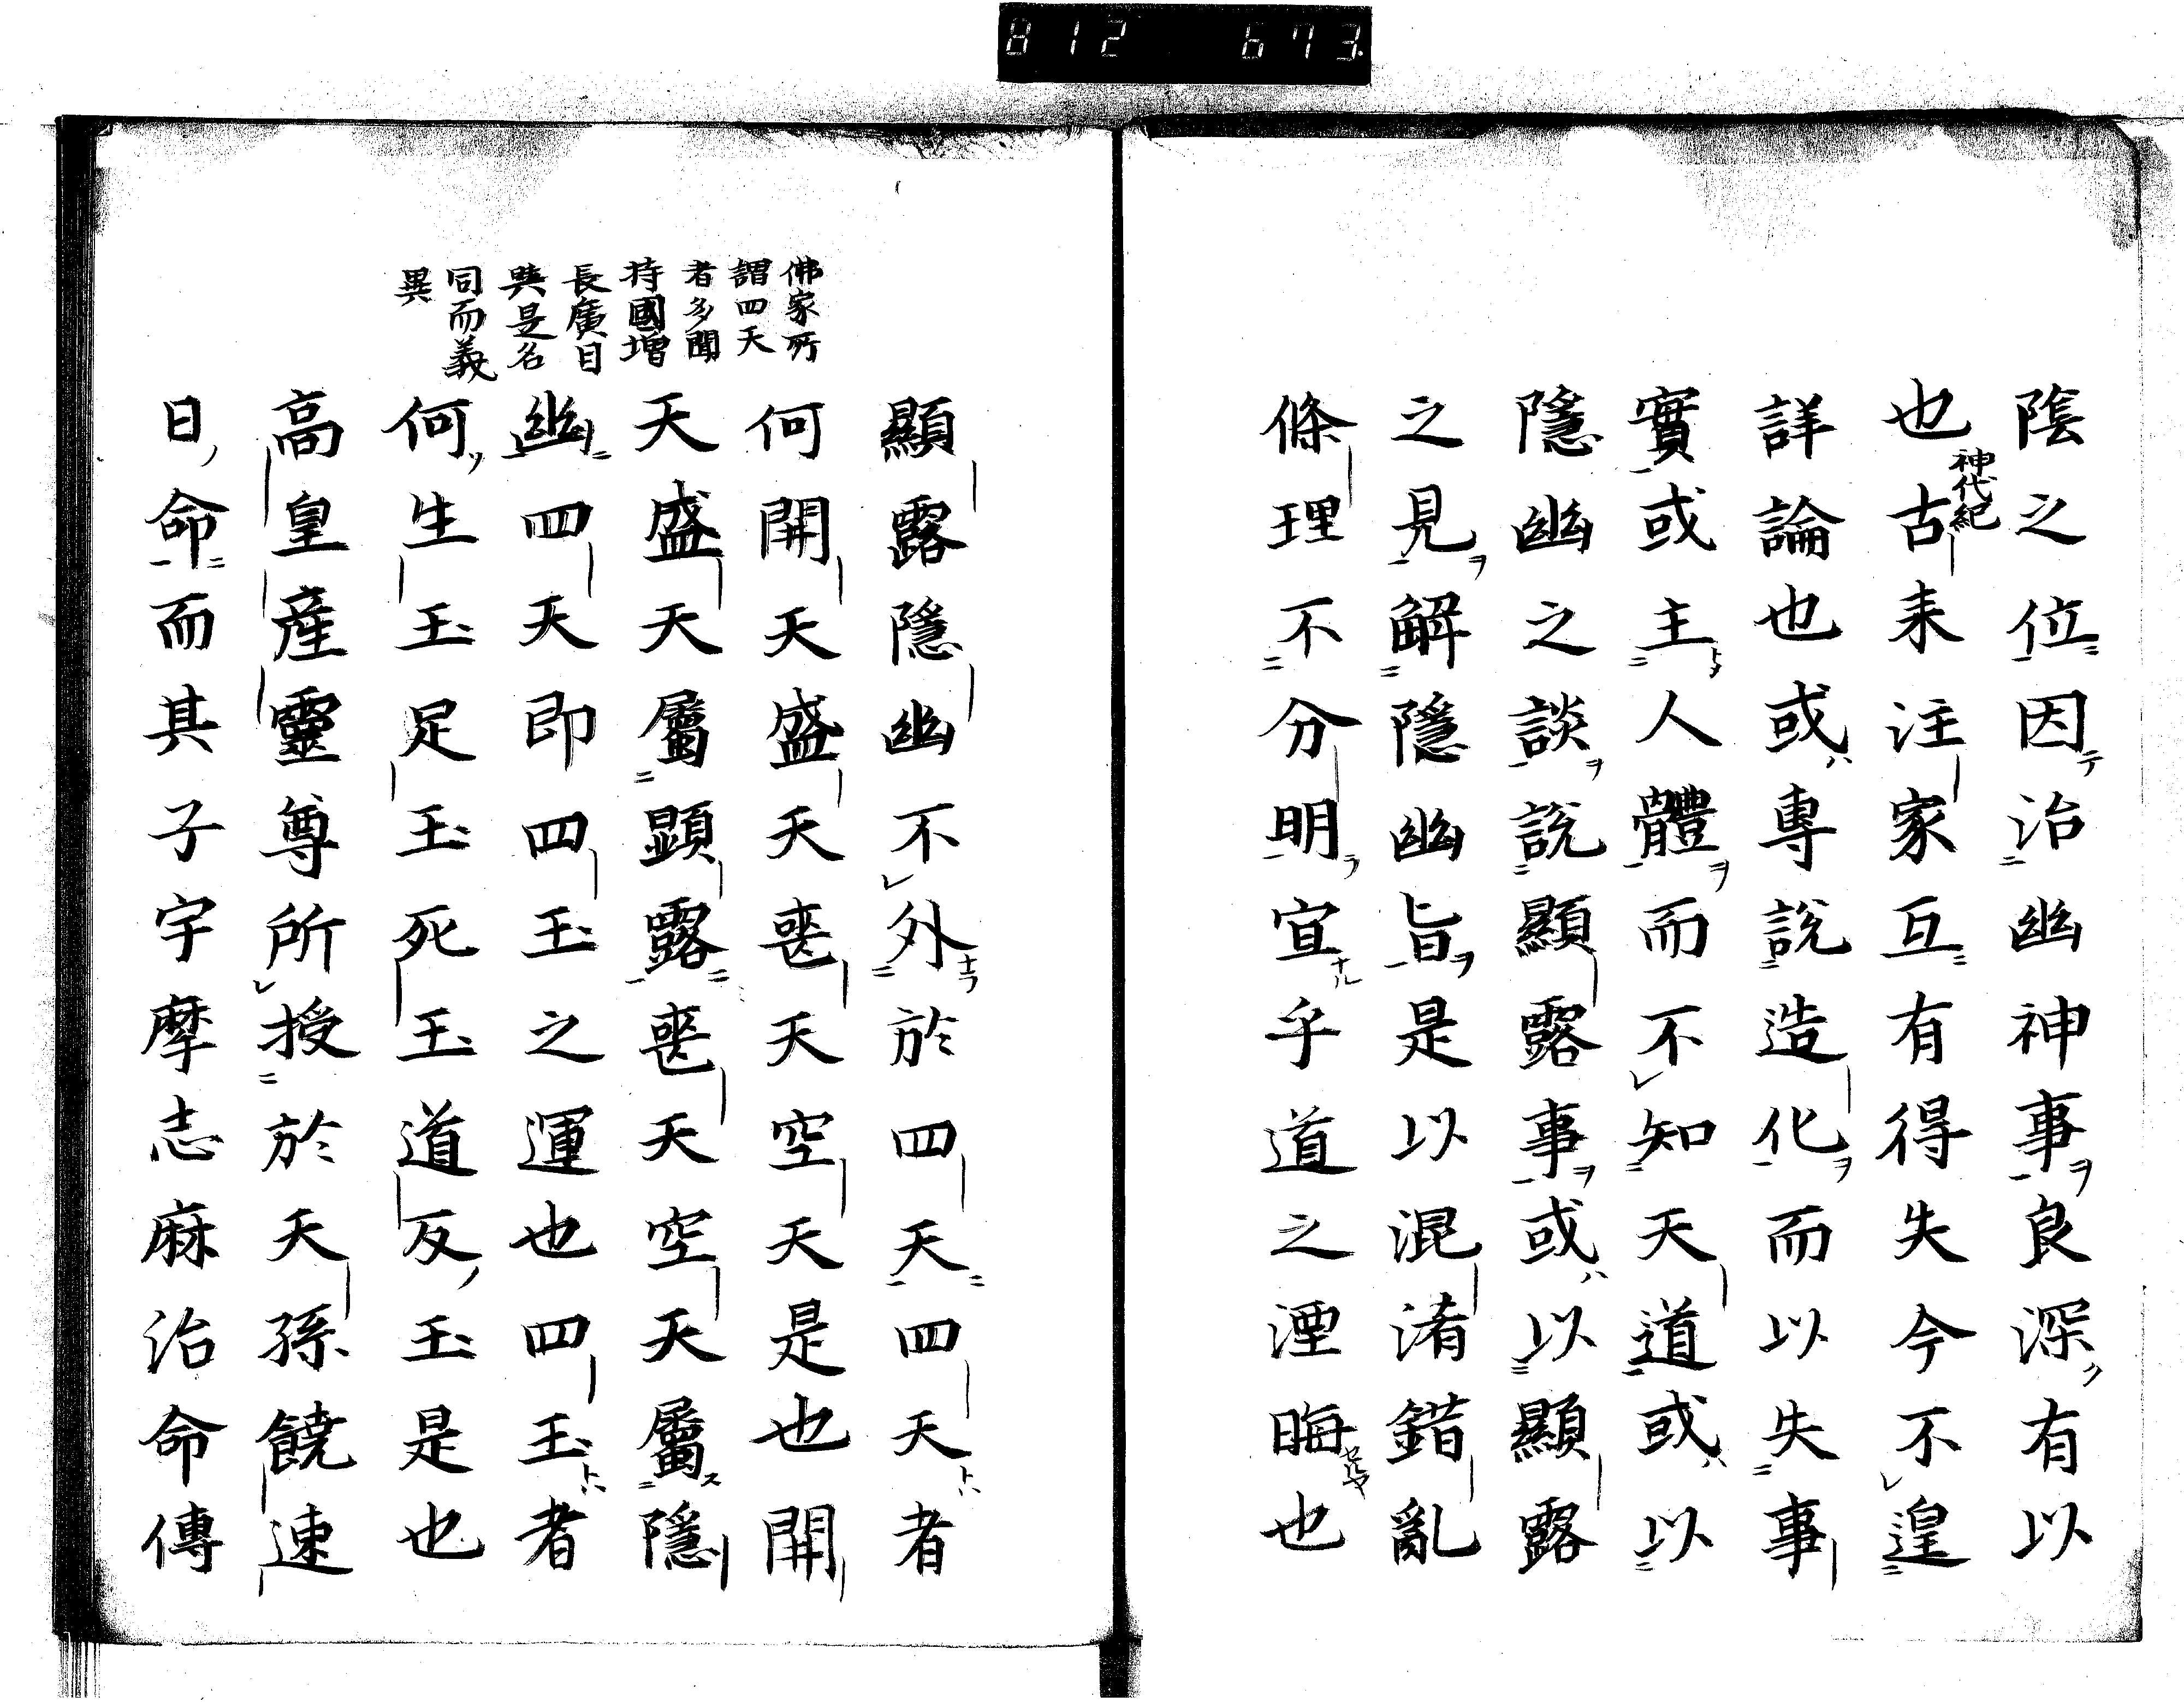 812 673
陰之位因治幽神事良深有以
也古来注家互有得失今不遑
神代紀
詳論也或專説造化而以失事
實或主人體而不知天道或以
隱幽之談説顯露事或以顯露
之見解隱幽旨是以混淆錯亂
條理不分明宜乎道之湮晦也
佛家所
謂四天
者多聞
持國増
長廣目
與是名
同而義
異
顯露隱幽不外於四天四天者
何開天盛天喪天空天是也開
天盛天屬顕露喪天空天屬隱
幽四天即四王之運也四王者
何生王足王死王道反王是也
高皇産靈尊所授於天孫饒速
日命而其子宇摩志麻治命傳